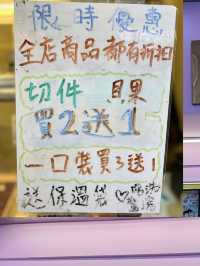 限時優惠
全店商品都有折扣
切件 貝果
買2送1
一口裝買3送1
送保溫袋